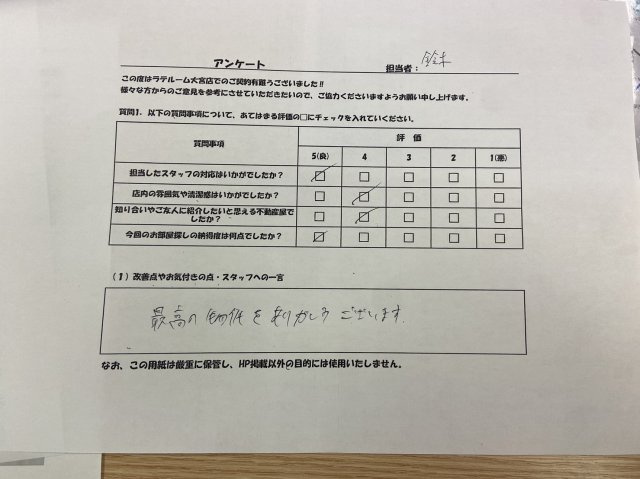 アンケート
担当者： 鈴木
この度はラテルーム大宮店でのご契約有難うございました!!
様々な方からのご意見を参考にさせていただきたいので、ご協力くださいますようお願い申し上げます。
質問1．以下の質問事項について、あてはまる評価の□にチェックを入れていください。
質問事項 評 価
5(良) 4 3 2 1(悪)
担当したスタッフの対応はいかがでしたか？
店内の雰囲気や清潔感はいかがでしたか？
知り合いやご友人に紹介したいと思える不動産屋で
したか？
今回のお部屋探しの納得度は何点でしたか？
(１) 改善点やお気付きの点・スタッフへの一言
最高の物件をありがとうございます.
なお、この用紙は厳重に保管し、HP掲載以外の目的には使用いたしません。